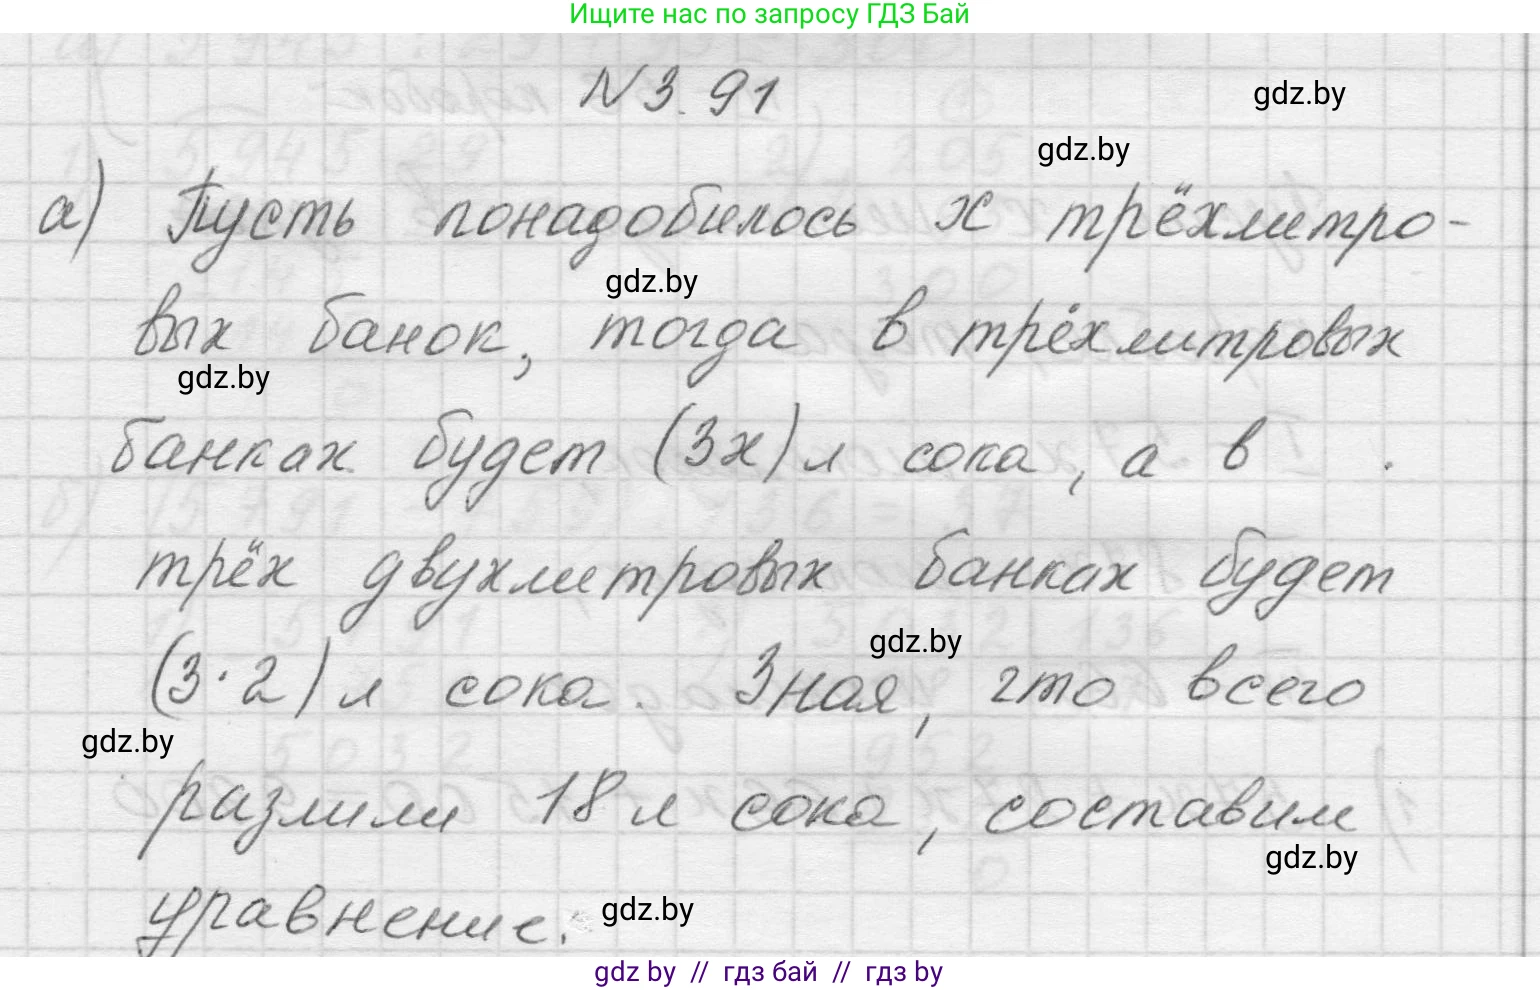 Ищите нас по запросу ГДЗ Бай
N 3.91
gdz.by
gdz.by
а) Пусть понадобилось x трёхлитро-
gdz.by
вых банок, тогда в трёхлитровых
gdz.by
банках будет (3x) л сока, а в
трёх двухлитровых банках будет
gdz.by
(3·2) л сока. Зная, что всего
gdz.by
разлили 18 л сока, составим
gdz.by
уравнение:
gdz.by
gdz by // гдз бай // гдз by